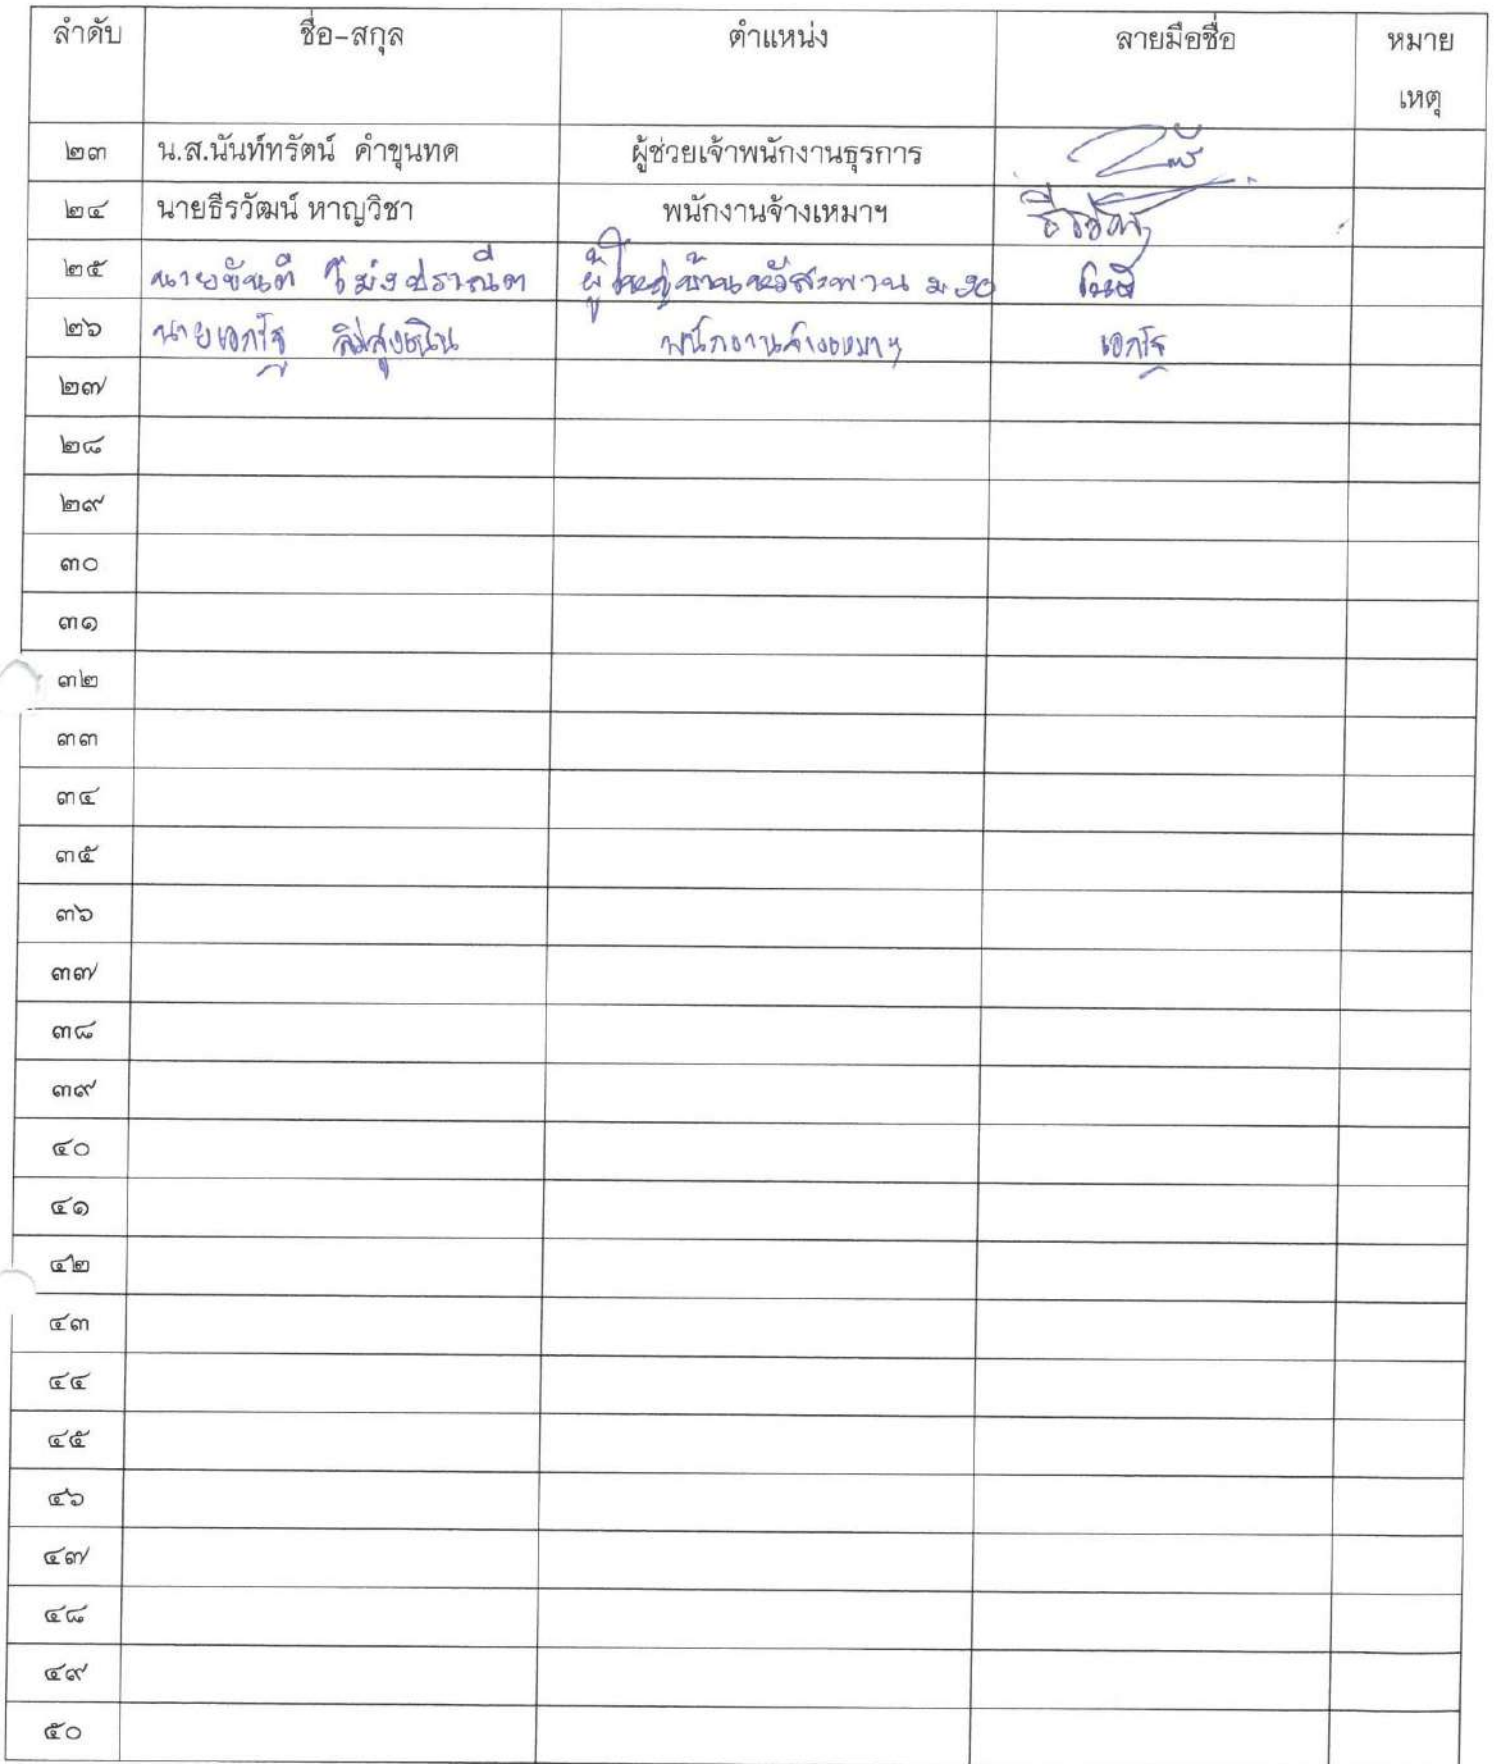 ลำดับ ชื่อ-สกุล ตำแหน่ง ลายมือชื่อ หมาย
เหตุ
๒๓ น.ส.นันท์ทรัตน์ คำขุนทด ผู้ช่วยเจ้าพนักงานธุรการ
๒๔ นายธีรวัฒน์ หาญวิชา พนักงานจ้างเหมาฯ
๒๕ นายขันตี ผู้ใหญ่บ้านหัวสะพาน ม.๑๐
๒๖ นายเอกรัฐ พนักงานจ้างเหมาฯ เอกรัฐ
๒๗
๒๘
๒๙
๓๐
๓๑
๓๒
๓๓
๓๔
๓๕
๓๖
๓๗
๓๘
๓๙
๔๐
๔๑
๔๒
๔๓
๔๔
๔๕
๔๖
๔๗
๔๘
๔๙
๕๐